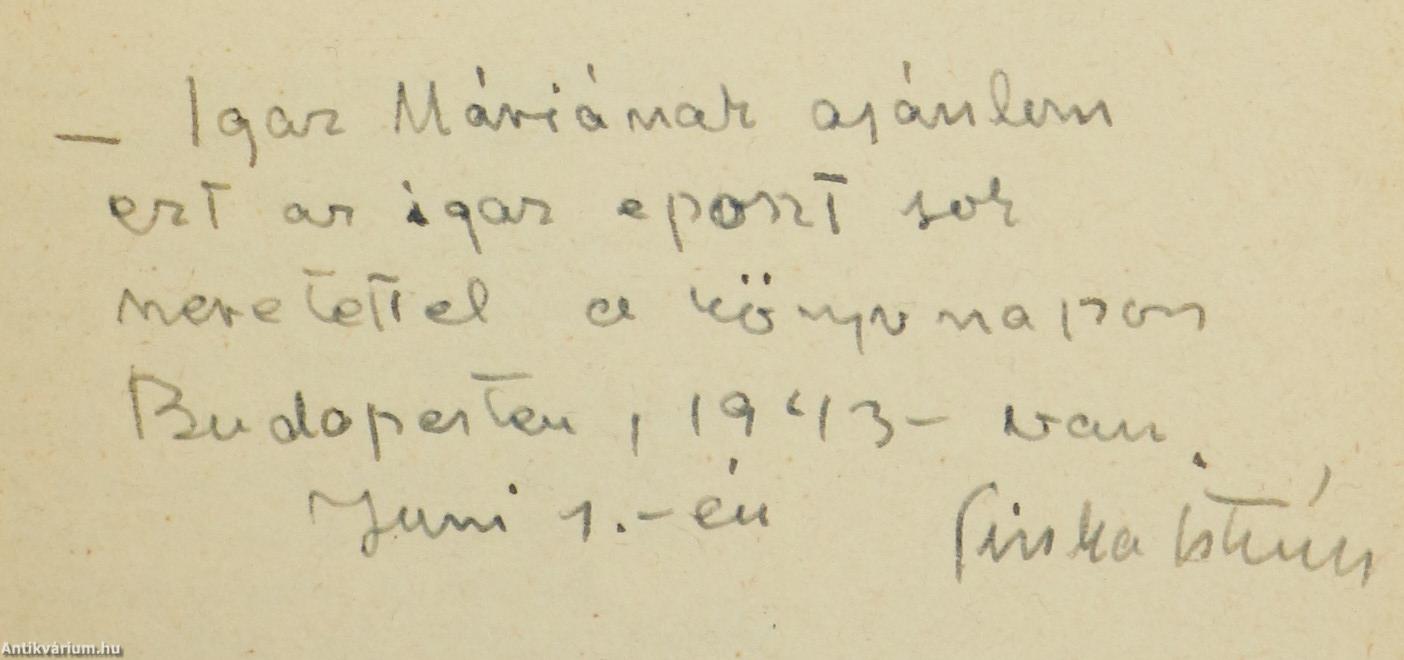 – Igaz Máriának ajánlom
ezt az igaz eposzt sok
szeretettel a könyvnapon
Budapesten, 1943-ban.
Juni 1.-én Sinka István
Antikvárium.hu